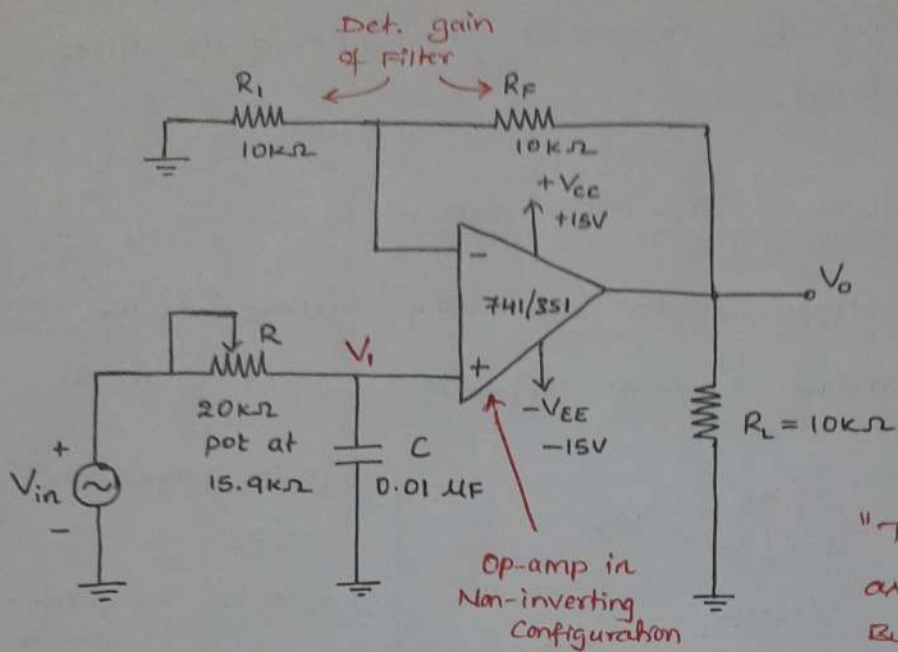 Det. gain
of Filter
R1
RF
10kΩ
10kΩ
+Vcc
+15V
-
741/351
Vo
R
V1
+
20kΩ
pot at
15.9kΩ
C
0.01 µF
-VEE
-15V
RL = 10kΩ
+
Vin
-
Op-amp in
Non-inverting
Configuration